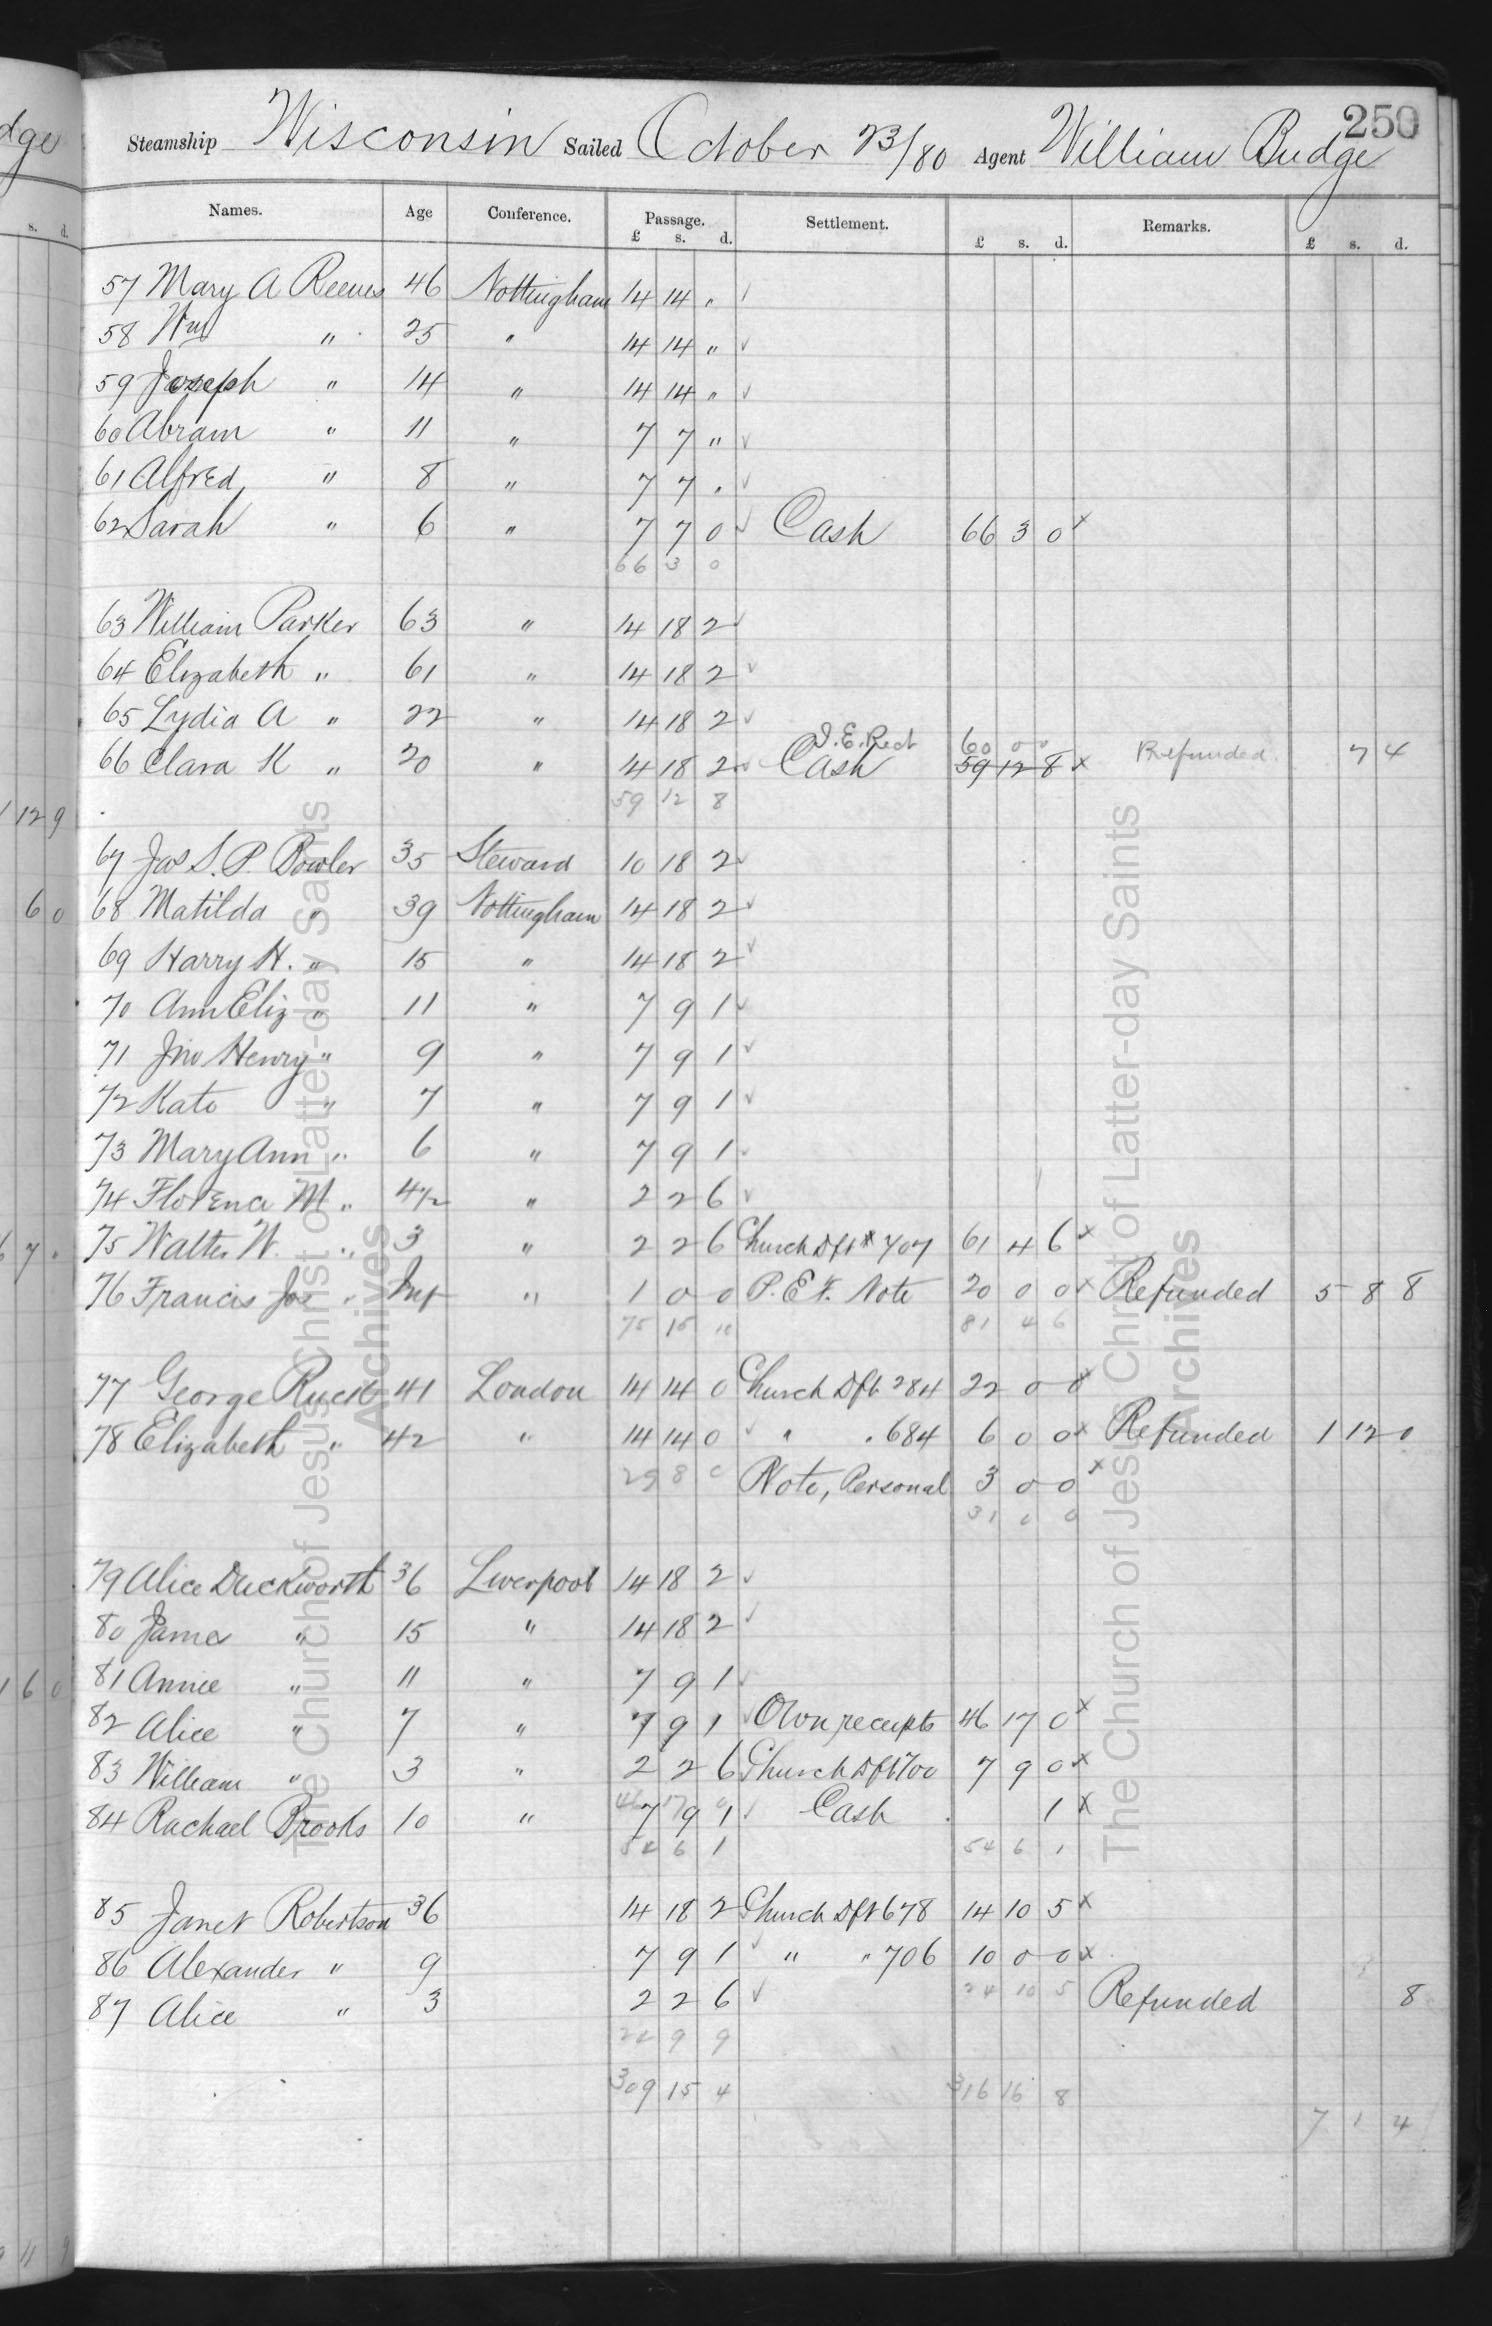 250
Steamship Wisconsin Sailed October 23/80 Agent William Budge
Names. Age Conference. Passage. £ s. d. Settlement. £ s. d. Remarks. £ s. d.
57 Mary A Reeves 46 Nottingham 14 14 "
58 Wm " 25 " 14 14 "
59 Joseph " 14 " 14 14 "
60 Abram " 11 " 7 7 "
61 Alfred " 8 " 7 7 "
62 Sarah " 6 " 7 7 0 Cash 66 3 0 x
66 3 0
63 William Parker 63 " 14 18 2
64 Elizabeth " 61 " 14 18 2
65 Lydia A " 22 " 14 18 2
I.E. Rect 60 0 0
66 Clara K " 20 " 14 18 2 Cash 59 12 8 x Refunded. 7 4
59 12 8
67 Jas S. P. Bowler 35 Steward 10 18 2
68 Matilda " 39 Nottingham 14 18 2
69 Harry H. " 15 " 14 18 2
70 Ann Eliz " 11 " 7 9 1
71 Jno Henry " 9 " 7 9 1
72 Kate " 7 " 7 9 1
73 Mary Ann " 6 " 7 9 1
74 Florence M " 4 1/2 " 2 2 6
75 Walter W. " 3 " 2 2 6 Church Dft # 707 61 4 6 x
76 Francis Jos " Inf " 1 0 0 P. E. F. Note 20 0 0 x Refunded 5 8 8
75 15 10 81 4 6
77 George Ruck 41 London 14 14 0 Church Dft 284 22 0 0 x
78 Elizabeth " 42 " 14 14 0 " " 684 6 0 0 x Refunded 1 12 0
29 8 0 Note, Personal 3 0 0 x
31 0 0
79 Alice Duckworth 36 Liverpool 14 18 2
80 James " 15 " 14 18 2
81 Annie " 11 " 7 9 1
82 Alice " 7 " 7 9 1 Own receipts 46 17 0 x
83 William " 3 " 2 2 6 Church Dft 700 7 9 0 x
46 17 0
84 Rachael Brooks 10 " 7 9 1 Cash 1 x
54 6 1 54 6 1
85 Janet Robertson 36 14 18 2 Church Dft 678 14 10 5 x
86 Alexander " 9 7 9 1 " " 706 10 0 0 x
87 Alice " 3 2 2 6 24 10 5 Refunded 8
24 9 9
309 15 4 316 16 8
7 1 4
The Church of Jesus Christ of Latter-day Saints
Archives
The Church of Jesus Christ of Latter-day Saints
Archives